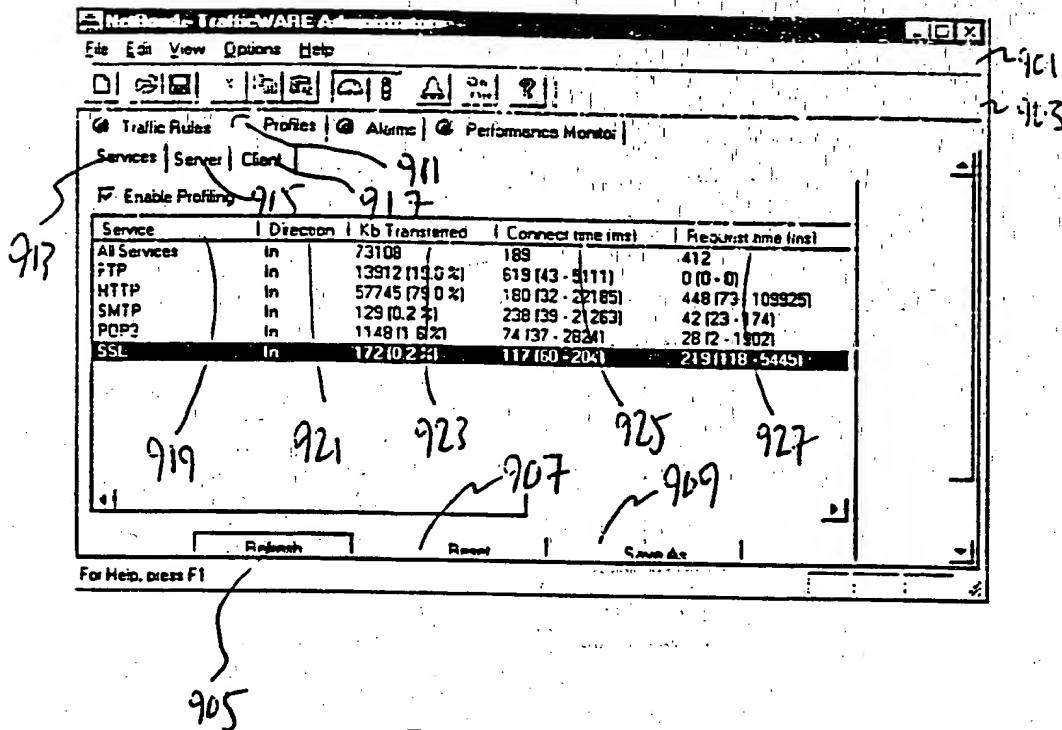 NetRoads- TrafficWARE Administrator
File Edit View Options Help
901
903
Traffic Rules Profiles Alarms Performance Monitor
Services Server Client
911
Enable Profiling 915 917
913
Service Direction Kb Transferred Connect time (ms) Request time (ms)
All Services In 73108 189 412
FTP In 13912 (19.0 %) 619 (43 - 5111) 0 (0 - 0)
HTTP In 57745 (79.0 %) 180 (32 - 22185) 448 (73 - 109925)
SMTP In 129 (0.2 %) 238 (39 - 21263) 42 (23 - 174)
POP3 In 1148 (1.6 %) 74 (37 - 2824) 28 (2 - 1902)
SSL In 172 (0.2 %) 117 (60 - 204) 219 (118 - 5445)
919 921 923 925 927
907 909
Refresh Reset Save As
For Help, press F1
905